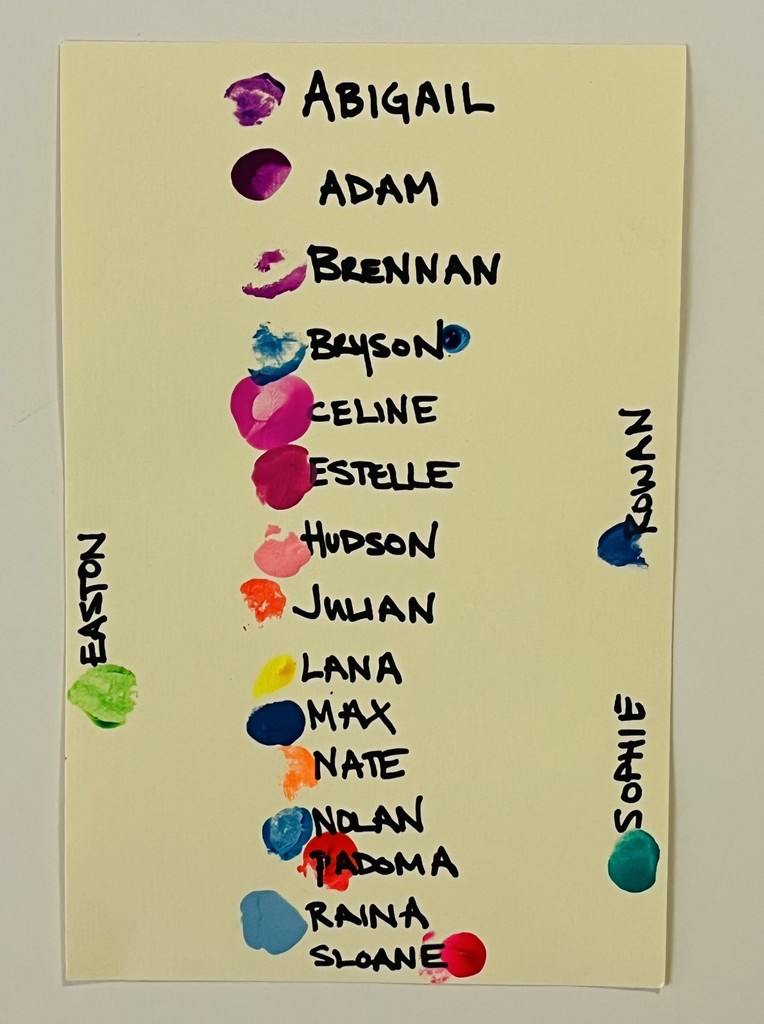 ABIGAIL
ADAM
BRENNAN
BRYSON
CELINE
ESTELLE
HUDSON
JULIAN
LANA
MAX
NATE
NOLAN
PADOMA
RAINA
SLOANE
EASTON
ROWAN
SOPHIE